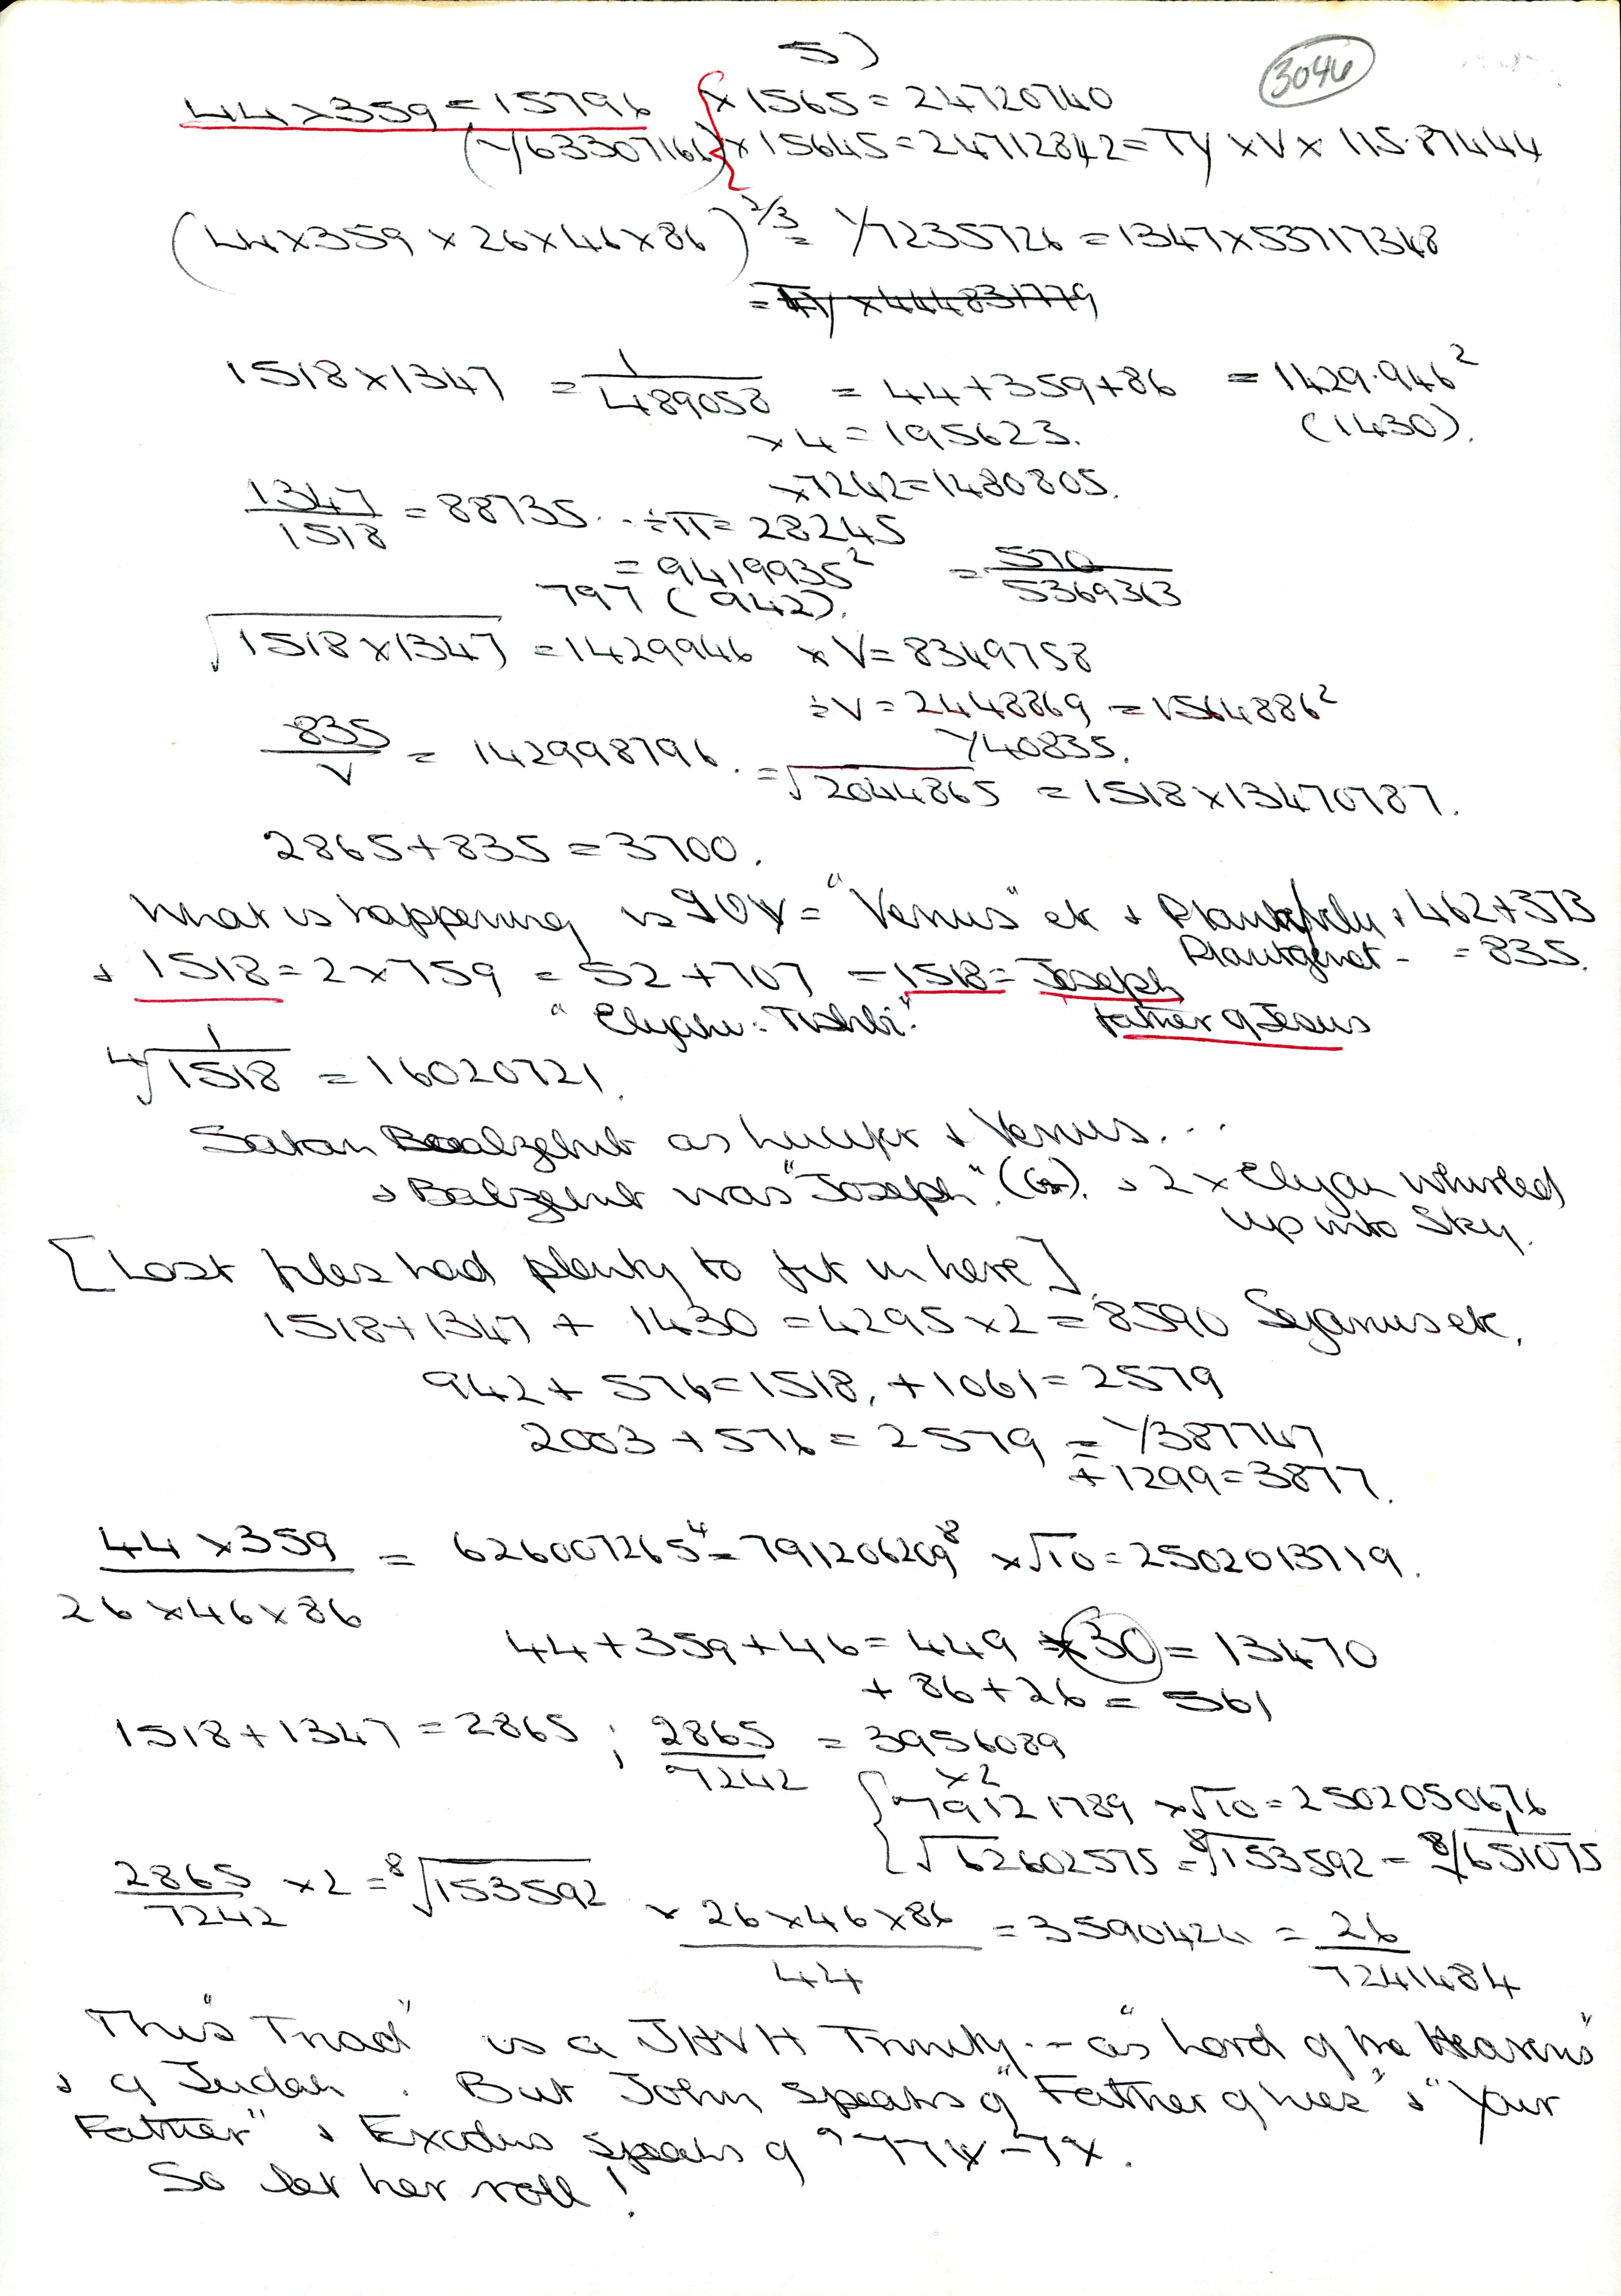 5)
3046
44×359=15796 × 1565=24720740
(1/63307166) × 15645=24712842=TY×V×115.87444
(44×359×26×46×86)^2/3 = 1/7235726=1347×53717348
1518×1347 = 1/489058 = 44+359+86 = 1429.946²
×4=195623. (1430).
×7242=1480805.
1347/1518 = 88735. ÷π=28245
= 9419935² = 570/5369363
797 (942).
√1518×1347 = 1429946 ×V=8349758
÷V=2448869=1564886²
835/V = 142998796. 1/40835.
=√2044865 = 1518×13470787.
2865+835=3700.
What is happening is = "Venus" etc + 462+373
Plantgenet - =835.
+ 1518=2×759 = 52+707 =1518= Joseph
"Elyahu: Tishbi." father of Jesus
4√1/1518 = 16020721.
Satan Baalzebub as Lucifer + Venus...
+ Balzebub was "Joseph". (Gr). + 2× Elyah whirled
up into Sky.
[Lost files had plenty to fit in here]
1518+1347+ 1430=4295×2=8590 Sejanus etc.
942+ 576=1518, +1061=2579
2003+576=2579 = 1/387747
+1299=3877.
44×359/26×46×86 = 626007265⁴=791206209⁸ ×√10=2502013719.
44+359+46=449 ×30=13470
+ 86+26= 561
1518+1347=2865; 2865/7242 = 3956089
×2
79121789 ×√10=250205067,6
√62602575=8√153592=8√1/651075
2865/7242 ×2=8√153592 × 26×46×86/44 =3590424 = 26/7241484
This "Triad" is a JHVH Trinity.- as "Lord of the Heavens"
+ of Judah. But John speaks of "Father of lies" + "Your
Father" + Exodus speaks of
So let her roll!